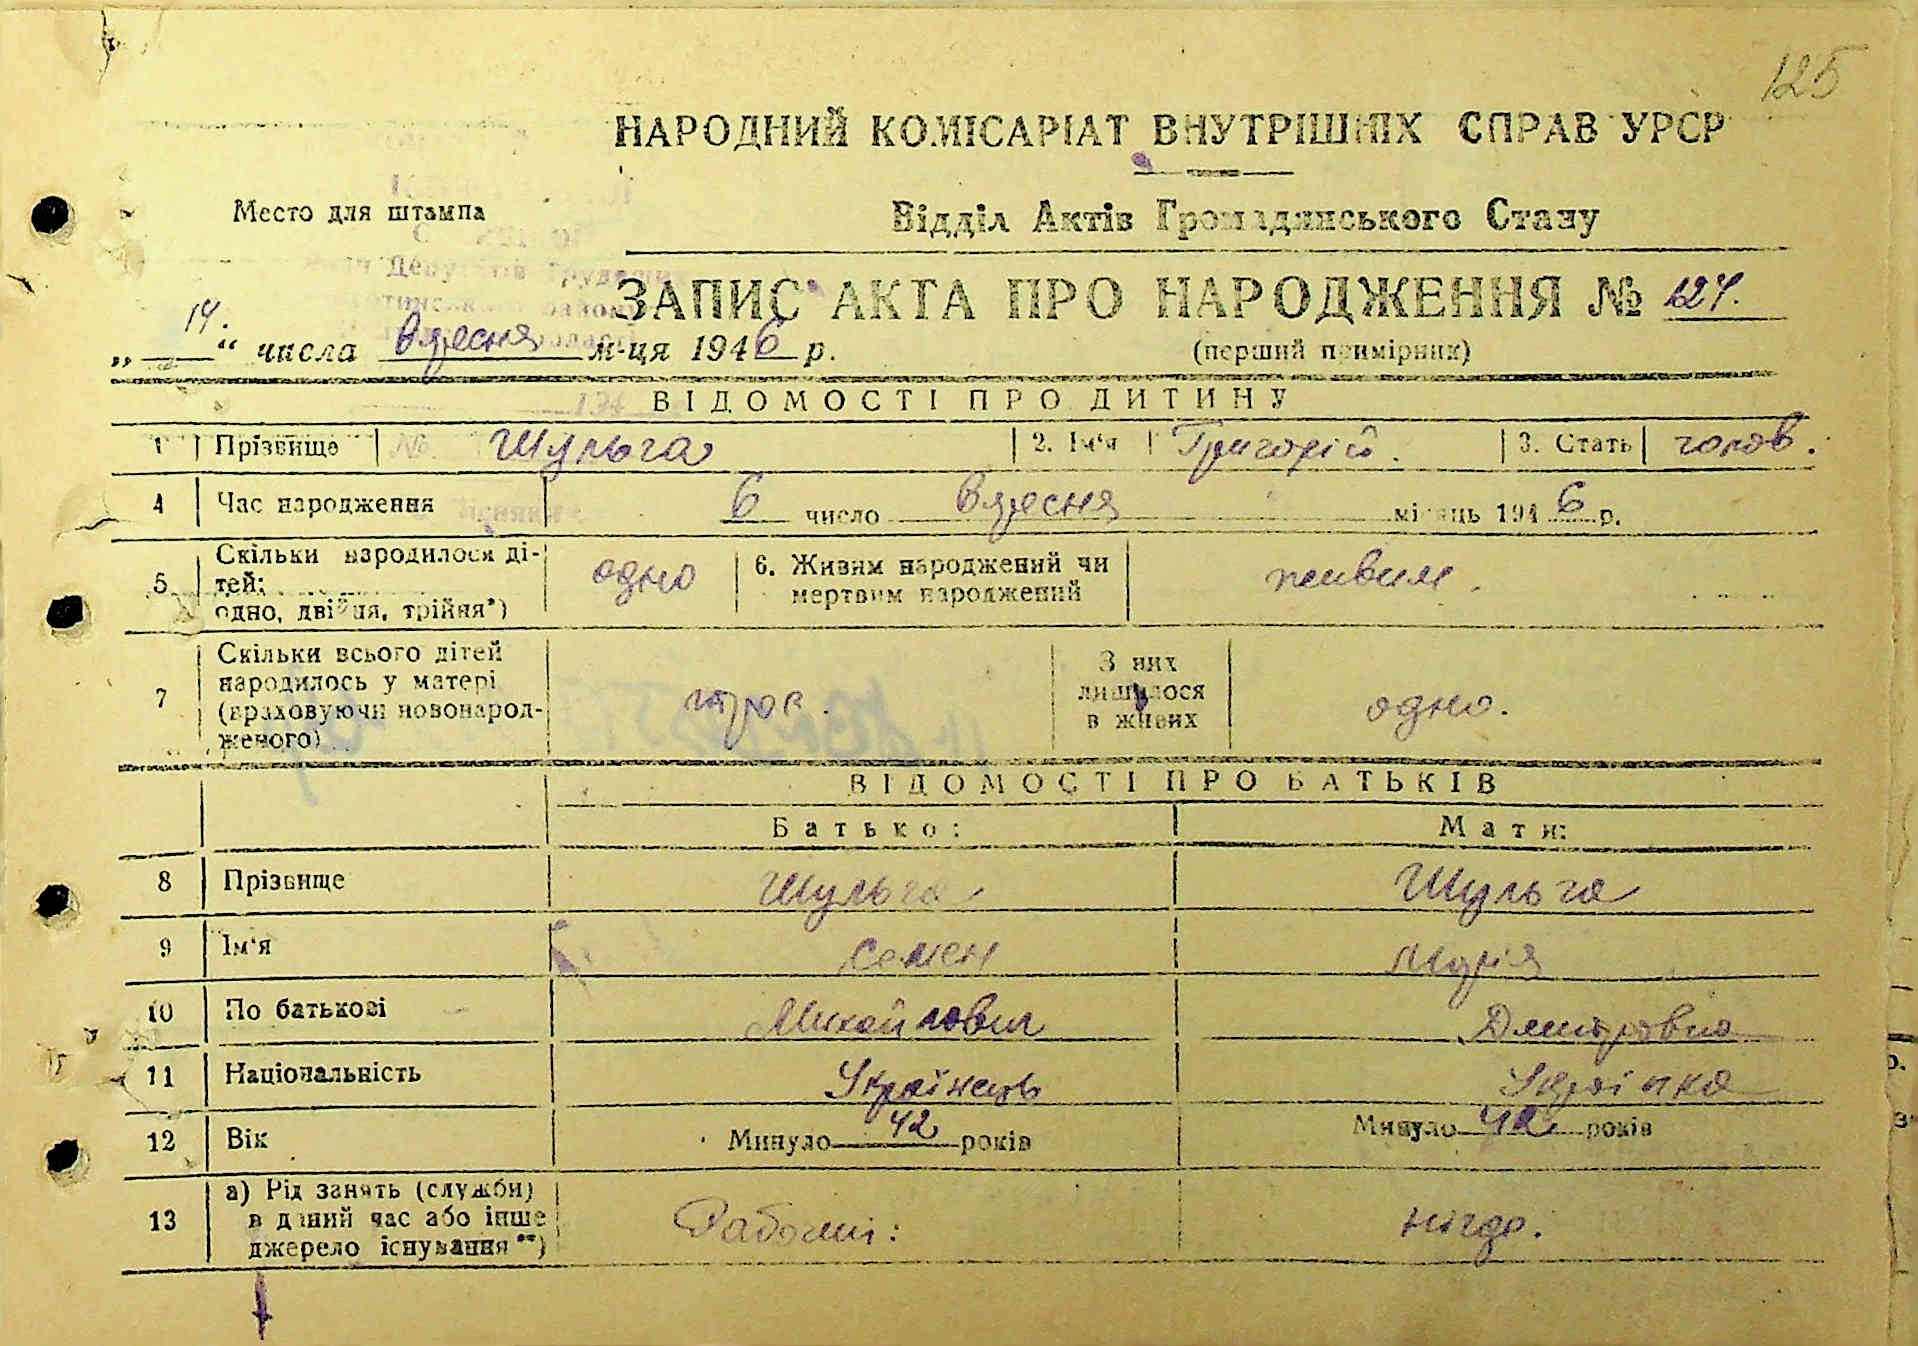 125
НАРОДНИЙ КОМІСАРІАТ ВНУТРІШНІХ СПРАВ УРСР
Место для штампа
Відділ Актів Громадянського Стану
ЗАПИС АКТА ПРО НАРОДЖЕННЯ № 124.
„ 14. “ числа вересня м-ця 1946 р.
(перший примірник)
ВІДОМОСТІ ПРО ДИТИНУ
1 Прізвище Шульга 2. Ім'я Григорій. 3. Стать чолов.
4 Час народження 6 число вересня місяць 1946 р.
5 Скільки народилося ді-
тей:
одно, двійня, трійня*) одно 6. Живим народжений чи
мертвим народжений живим.
7 Скільки всього дітей
народилось у матері
(враховуючи новонарод-
женого) троє. З них
лишилося
в живих одно.
ВІДОМОСТІ ПРО БАТЬКІВ
Батько: Мати:
8 Прізвище Шульга Шульга
9 Ім'я Семен Марія
10 По батькові Михайлович Дмитровна
11 Національність Українець Українка
12 Вік Минуло 42 років Минуло 42 років
13 а) Рід занять (служби)
в даний час або інше
джерело існування**) Рабочий: нігде.